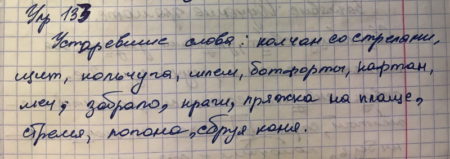 Упр 133
Устаревшие слова: колчан со стрелами,
щит, кольчуга, шлем, ботфорты, кафтан,
меч, забрало, краги, пряжка на плаще,
стремя, попона, сбруя коня.